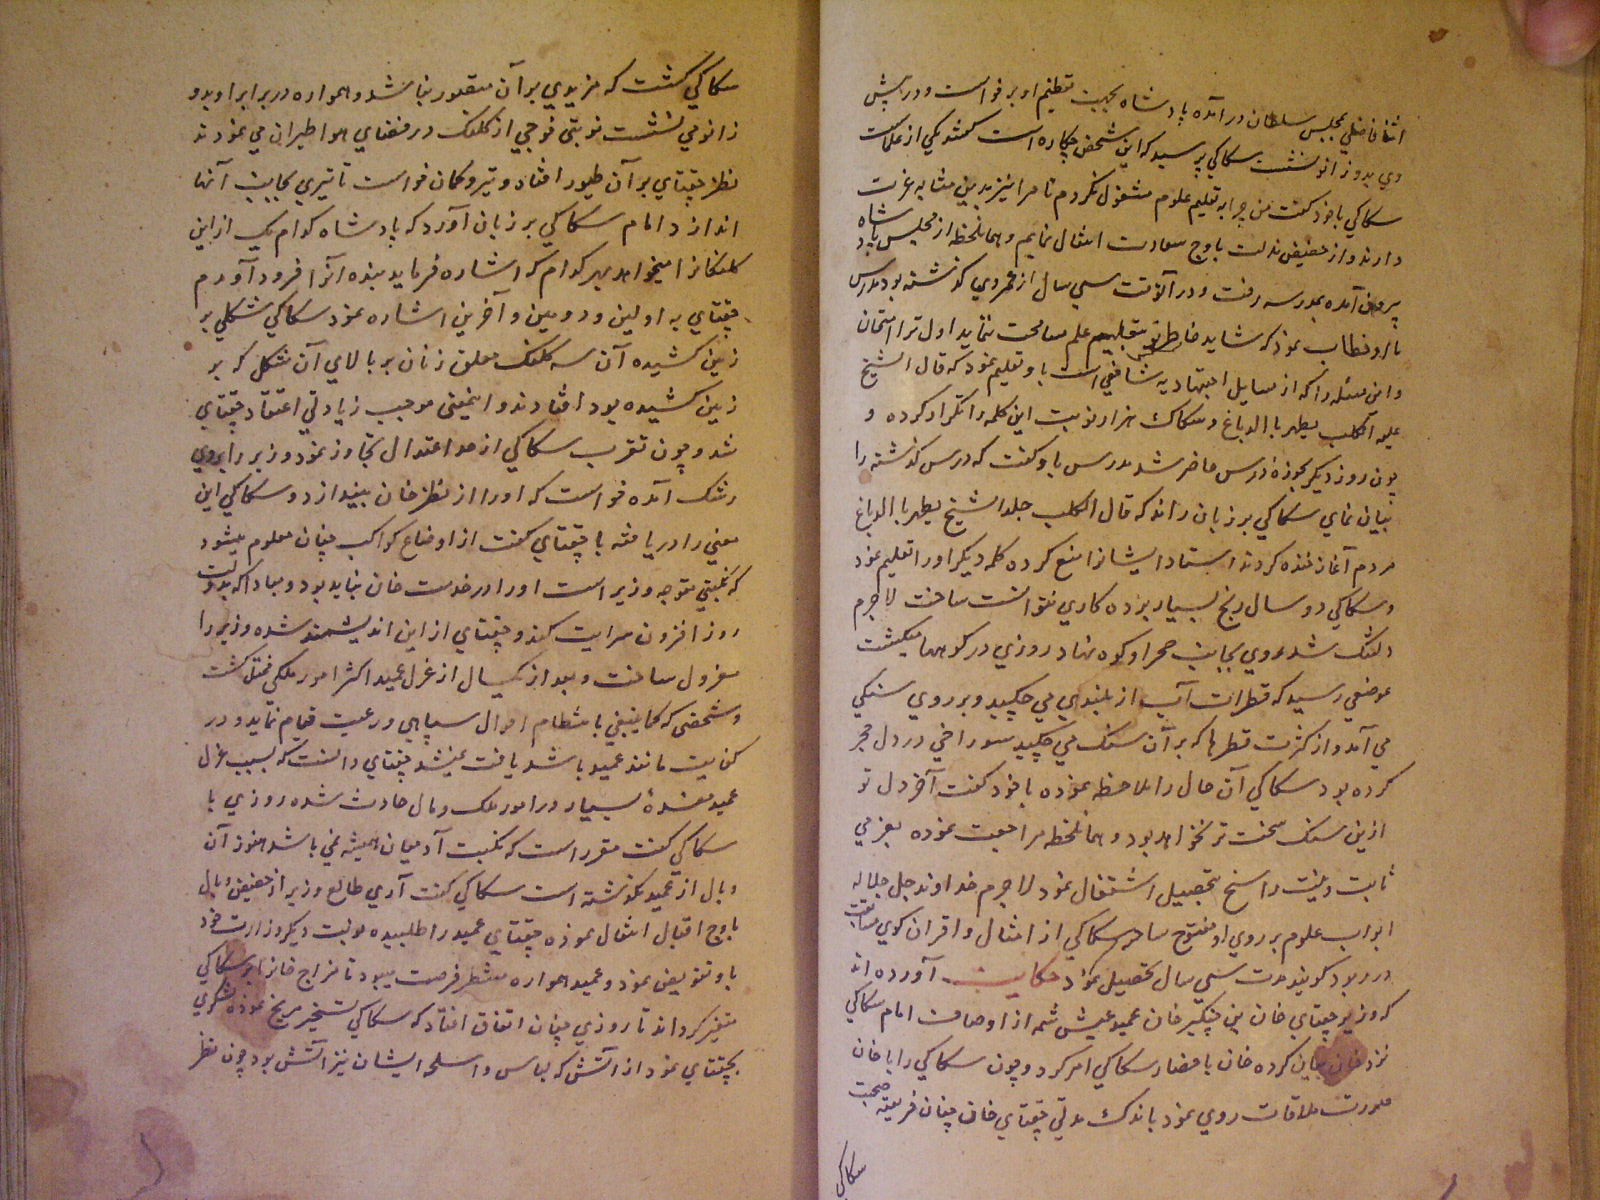 اثنا فاضلی بمجلس سلطان درآمده پادشاه بجهت تعظیم او برخواست و در پیش
وی بدو زانو نشست سکاکی پرسید که این شخص چکاره است گفتند یکی از علماست
سکاکی باخود گفت من چرا به تعلیم علوم مشغول نکردم تا مرا نیز بدین مثابه عزت
دارند و از حضیض مذلت باوج سعادت انتقال نمایم و همانلحظه از مجلس پادشاه
بیرون آمده بمدرسه رفت و در آنوقت سی سال از عمر وی کذشته بود مدرس
با او خطاب نمود که شاید خاطر تو بتعلیم علم مسامحت ننماید اول ترا امتحان
و این مسئله را که از مسایل اجتهادیه شافعی است باو تعلیم نمود که قال الشیخ
جلد الکلب یطهر بالدباغ و سکاک هزار نوبت این کلمه را تکرار کرده و
چون روز دیکر بحوزهٔ درس حاضر شد مدرس باو کفت که درس کذشته را
بیان نمای سکاکی بر زبان راند که قال الکلب جلد الشیخ یطهر بالدباغ
مردم آغاز خنده کردند استاد ایشانرا منع کرده کلمه دیکر او را تعلیم نمود
و سکاکی دو سال رنج بسیار برده کاری نتوانست ساخت لاجرم
دلتنک شده روی بجانب صحرا و کوه نهاد روزی در کوهها میکشت
بموضعی رسید که قطرات آب از بلندی می چکید و بر روی سنکی
می آمد و از کثرت قطرها که بر آن سنک می چکید سوراخی در دل حجر
کرده بود سکاکی آن حال را ملاحظه نموده باخود کفت آخر دل تو
ازین سنک سخت تر نخواهد بود و همانلحظه مراجعت نموده بعزمی
ثابت و نیت راسخ بتحصیل اشتغال نمود لاجرم خداوند جل جلاله
ابواب علوم بر روی او مفتوح ساخته سکاکی از امثال و اقران کوی سبقت
در ربود کویند مدت سی سال تحصیل نمود حکایت آورده اند
که وزیر چغتای خان بن چنکیز خان عمید حبش شمه از اوصاف امام سکاکی
نزد خان بیان کرده خان باحضار سکاکی امر کرد و چون سکاکی را با خان
صورت ملاقات روی نمود باندک مدتی چغتای خان چنان فریفته صحبت
سکاکی
سکاکی کشت که مزیدی بر آن متصور نباشد و همواره در برابر او بدو
زانو می نشست نوبتی فوجی از کلنک در فضای هوا طیران می نمودند
نظر چغتای بر آن طیور افتاد و تیر و کمان خواست تا تیری بجانب آنها
اندازد امام سکاکی بر زبان آورد که پادشاه کدام یک از این
کلنکانرا میخواهد بهر کدام که اشاره فرماید بنده آنرا فرود آورم
چغتای به اولین و دومین و آخرین اشاره نمود سکاکی شکلی بر
زمین کشیده آن سه کلنک معلق زنان بر بالای آن شکل که بر
زمین کشیده بود افتادند و اینمعنی موجب زیادتی اعتقاد چغتای
شد و چون تقرب سکاکی از حد اعتدال تجاوز نمود وزیر را بروی
رشک آمده خواست که او را از نظر خان بیندازد و سکاکی این
معنی را دریافته با چغتای کفت از اوضاع کواکب چنان معلوم میشود
که نکبتی متوجه وزیر است او را در خدمت خان نباید بود و مبادا که بدولت
روز افزون سرایت کند و چغتای از این اندیشمند شده وزیر را
معزول ساخت و بعد از یکسال از عزل عمید اکثر امور ملکی مختل کشت
و شخصی که کما ینبغی بانتظام احوال سپاهی و رعیت قیام نماید و در
کفایت مانند عمید باشد یافت نمیشد چغتای دانست که بسبب عزل
عمید مفسدهٔ بسیار در امور ملک و مال حادث شده روزی با
سکاکی کفت مقرر است که نکبت آدمیان همیشه نمی باشد هنوز آن
وبال از عمید نکذشته است سکاکی کفت آری طالع وزیر از حضیض وبال
باوج اقبال انتقال نموده چغتای عمید را طلبیده نوبت دیکر وزارت خود
باو تفویض نمود و عمید همواره منتظر فرصت میبود تا مزاج خانرا بر سکاکی
متغیر کرداند تا روزی چنان اتفاق افتاد که سکاکی تسخیر مریخ نموده لشکری
بچغتای نمود از آتش که لباس و اسلحه ایشان نیز آتش بود چون نظر